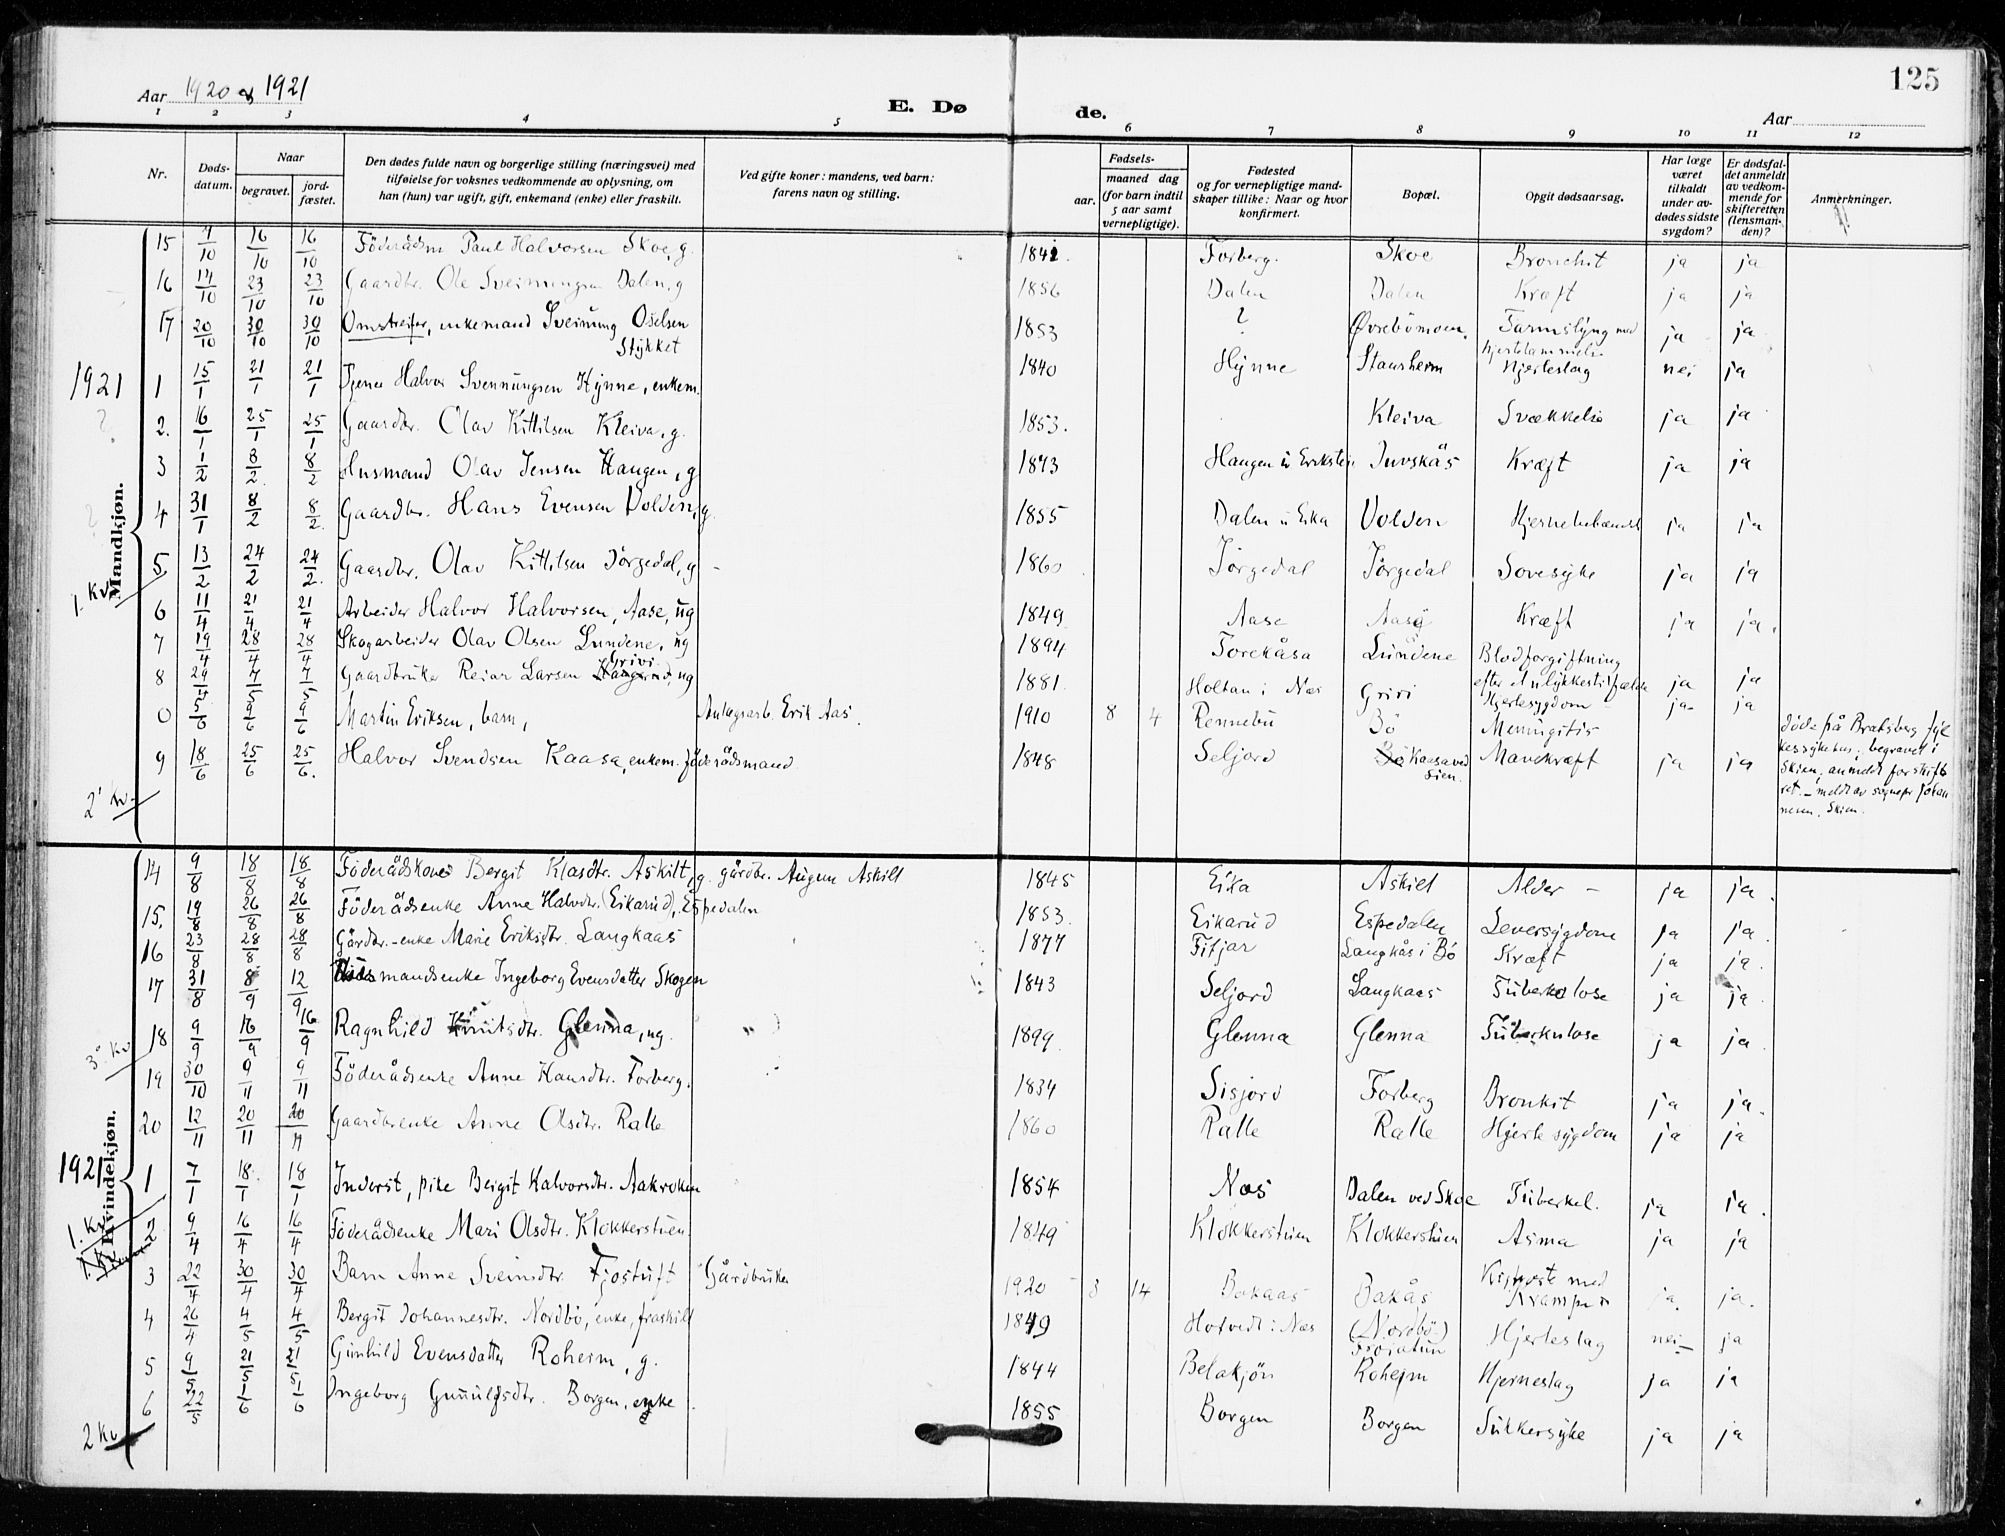 125
Aar 1920 & 1921
E. Døde.
Aar
1 2 3 4 5 6 7 8 9 10 11 12
Nr.
Døds-datum.
Naar
begravet.
jord-fæstet.
Den dødes fulde navn og borgerlige stilling (næringsvei) med
tilføielse for voksnes vedkommende av oplysning, om
han (hun) var ugift, gift, enkemand (enke) eller fraskilt.
Ved gifte koner: mandens, ved barn:
farens navn og stilling.
Fødsels-
aar.
maaned dag
(for barn indtil
5 aar samt
vernepligtige).
Fødested
og for vernepligtige mand-
skaper tillike: Naar og hvor
konfirmert.
Bopæl.
Opgit dødsaarsag.
Har læge
været
tilkaldt
under av-
dødes sidste
sygdom?
Er dødsfal-
det anmeldt
av vedkom-
mende for
skifteretten
(lensman-
den)?
Anmerkninger.
Mandkjøn.
15 7/10 16/10 16/10 Föderådsm Paul Halvorsen Skoe, g. 1842. Forberg. Skoe Bronchit ja ja
16 14/10 23/10 23/10 Gaardbr. Ole Sveinungsen Dalen, g 1856 Dalen Dalen Kræft ja ja
17 20/10 30/10 30/10 Omstreifer, enkemand Sveinung Oselsen Stykket 1853 ? Øvrebömoen. Tarmslyng med hjertelammelse ja ja
1921
1 15/1 21/1 21/1 Halvor Svennungsen Hynne, enkem. 1840 Hynne Staasheim Hjerteslag nei ja
2. 16/1 25/1 25/1 Gaardbr. Olav Kittilsen Kleiva, g. 1853. Kleiva Svækkelse ja ja
3 1/2 8/2 8/2 Husmand Olav Jensen Haugen, g 1873 Haugen u Erikstein Juvskås Kræft ja ja
4 31/1 8/2 8/2. Gaardbr. Hans Evensen Volden, g. 1855 Dalen u Eika Volden ja ja
5 13/2 24/2 24/2. Gaardbr. Olav Kittilsen Jörgedal, g 1860 Jörgedal Jörgedal Sovesyke ja ja
1. Kv
6 11/4 21/4 21/4 Arbeider Halvor Halvorsen, Aase, ug 1849 Aase Aase Kræft ja ja.
7 19/4 28/4 28/4 Skogarbeider Olav Olsen Lundene, ug 1894 Torekåsa Lundene Blodforgiftning efter et ulykkestilfælde ja ja
8 29/4 7/5 7/5 Gaardbruker Reiar Larsen Grivi, ug 1881. Holtan i Næs Grivi Hjertesygdom ja ja
0 5/6 9/6 9/6 Martin Eriksen, barn, Anlægsarb. Erik Aas. 1910 8 4 Rennebu Bö Meningitis
döde på Bratsberg fyl
kessykehus; begravet i
Skien, anmeldt for skifte
ret. – meldt av sognepr Johan
nesen, Skien.
9 18/6 25/6 25/6. Halvor Svendsen Kaasa, enkem. föderådsmand 1848 Seljord Bö Kaasa ved Sien. Mavekræft ja ja
2' Kv
Kvindekjøn.
14 9/8 18/8 18/8 Föderådskone Bergit Klasdtr. Askilt, g. gårdbr. Augun Askilt 1845 Eika Askilt Alder – ja ja.
15. 19/8 26/8 26/8 Föderådsenke Anne Halvdtr. (Eikarud), Espedalen 1853. Eikarud Espedalen Leversygdom ja ja.
16 23/8 28/8 28/8 Gårdbr.-enke Marie Eriksdtr. Langkaas 1877 Fitjar Langkås i Bö Kræft ja ja.
17 31/8 8/9 12/9 Husmandsenke Ingeborg Evensdatter Skogen 1843 Seljord Langkaas Tuberkulose ja ja.
18 9/9 16/9 16/9 Ragnhild Knutsdtr. Glenna, ug. 1899 Glenna Glenna Tuberkulose ja ja.
3' Kv
19 30/10 9/11 9/11 Föderådsenke Anne Hansdtr. Forberg. 1834 Sisjord Forberg Bronkit ja ja.
20 12/11 20/11 20/11 Gaardbrenke Anne Olsdtr. Ralle 1860 Ralle Ralle Hjertesygdom ja ja
1921
1 7/1 18/1 18/1 Inderst, pike Bergit Halvorsdtr. Aakroken 1854 Næs Dalen ved Skoe Tuberkel. ja ja.
1. Kv
2 9/4 16/4 16/4 Föderådsenke Mari Olsdtr. Klokkerstuen. 1849 Klokkerstuen Klokkerstuen Asma ja ja
3 22/4 30/4 30/4 Barn Anne Sveinsdtr. Fjostuft Gårdbruker 1920 3 14 Bakaas Bakås Kighoste med Kramper ja. ja.
4 26/4 4/5 4/5 Bergit Johannesdtr. Nordbö, enke, fraskilt 1849 Hotvedt i Næs (Nordbö) Hjerteslag nei ja
5 9/5 21/5 21/5 Gunhild Evensdatter Roheim, g. 1844 Belakjön Roheim Hjerneslag ja ja
6 22/5 1/6 1/6 Ingeborg Gunnulfsdtr. Borgen, enke 1855 Borgen Borgen Sukkersyke ja ja
2 Kv